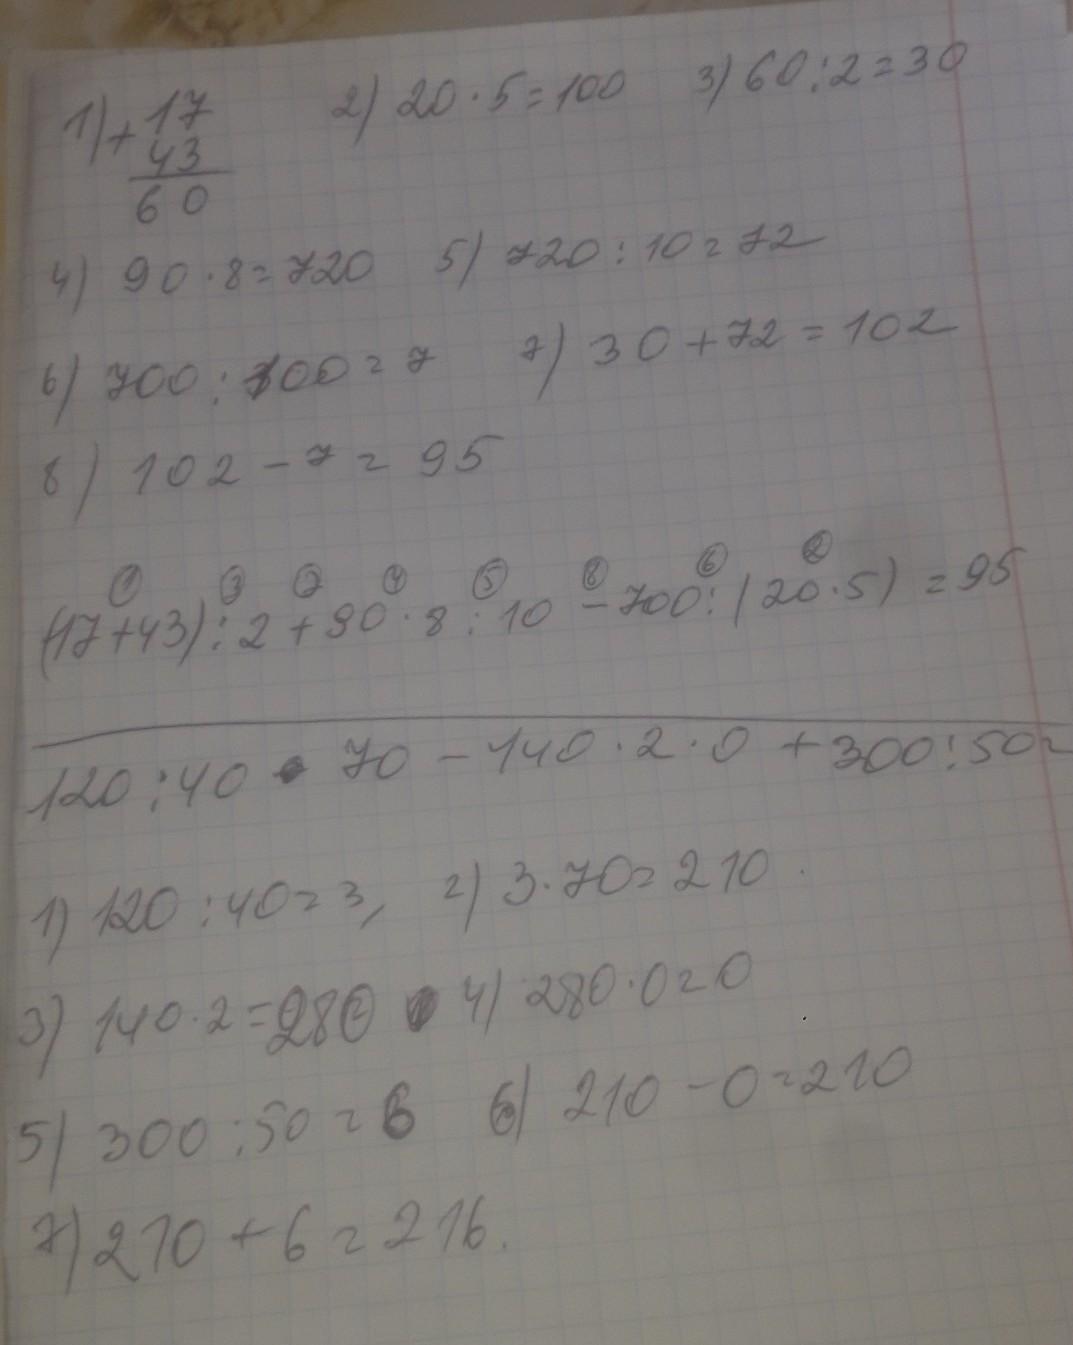 1) + 17 2) 20 · 5 = 100 3) 60 : 2 = 30
43
60
4) 90 · 8 = 720 5) 720 : 10 = 72
6) 700 : 100 = 7 7) 30 + 72 = 102
8) 102 - 7 = 95
1 3 7 4 5 8 6 2
(17+43) : 2 + 90 · 8 : 10 - 700 : (20 · 5) = 95
120 : 40 · 70 - 140 · 2 · 0 + 300 : 50 =
1) 120 : 40 = 3, 2) 3 · 70 = 210
3) 140 · 2 = 280 4) 280 · 0 = 0
5) 300 : 50 = 6 6) 210 - 0 = 210
7) 210 + 6 = 216.